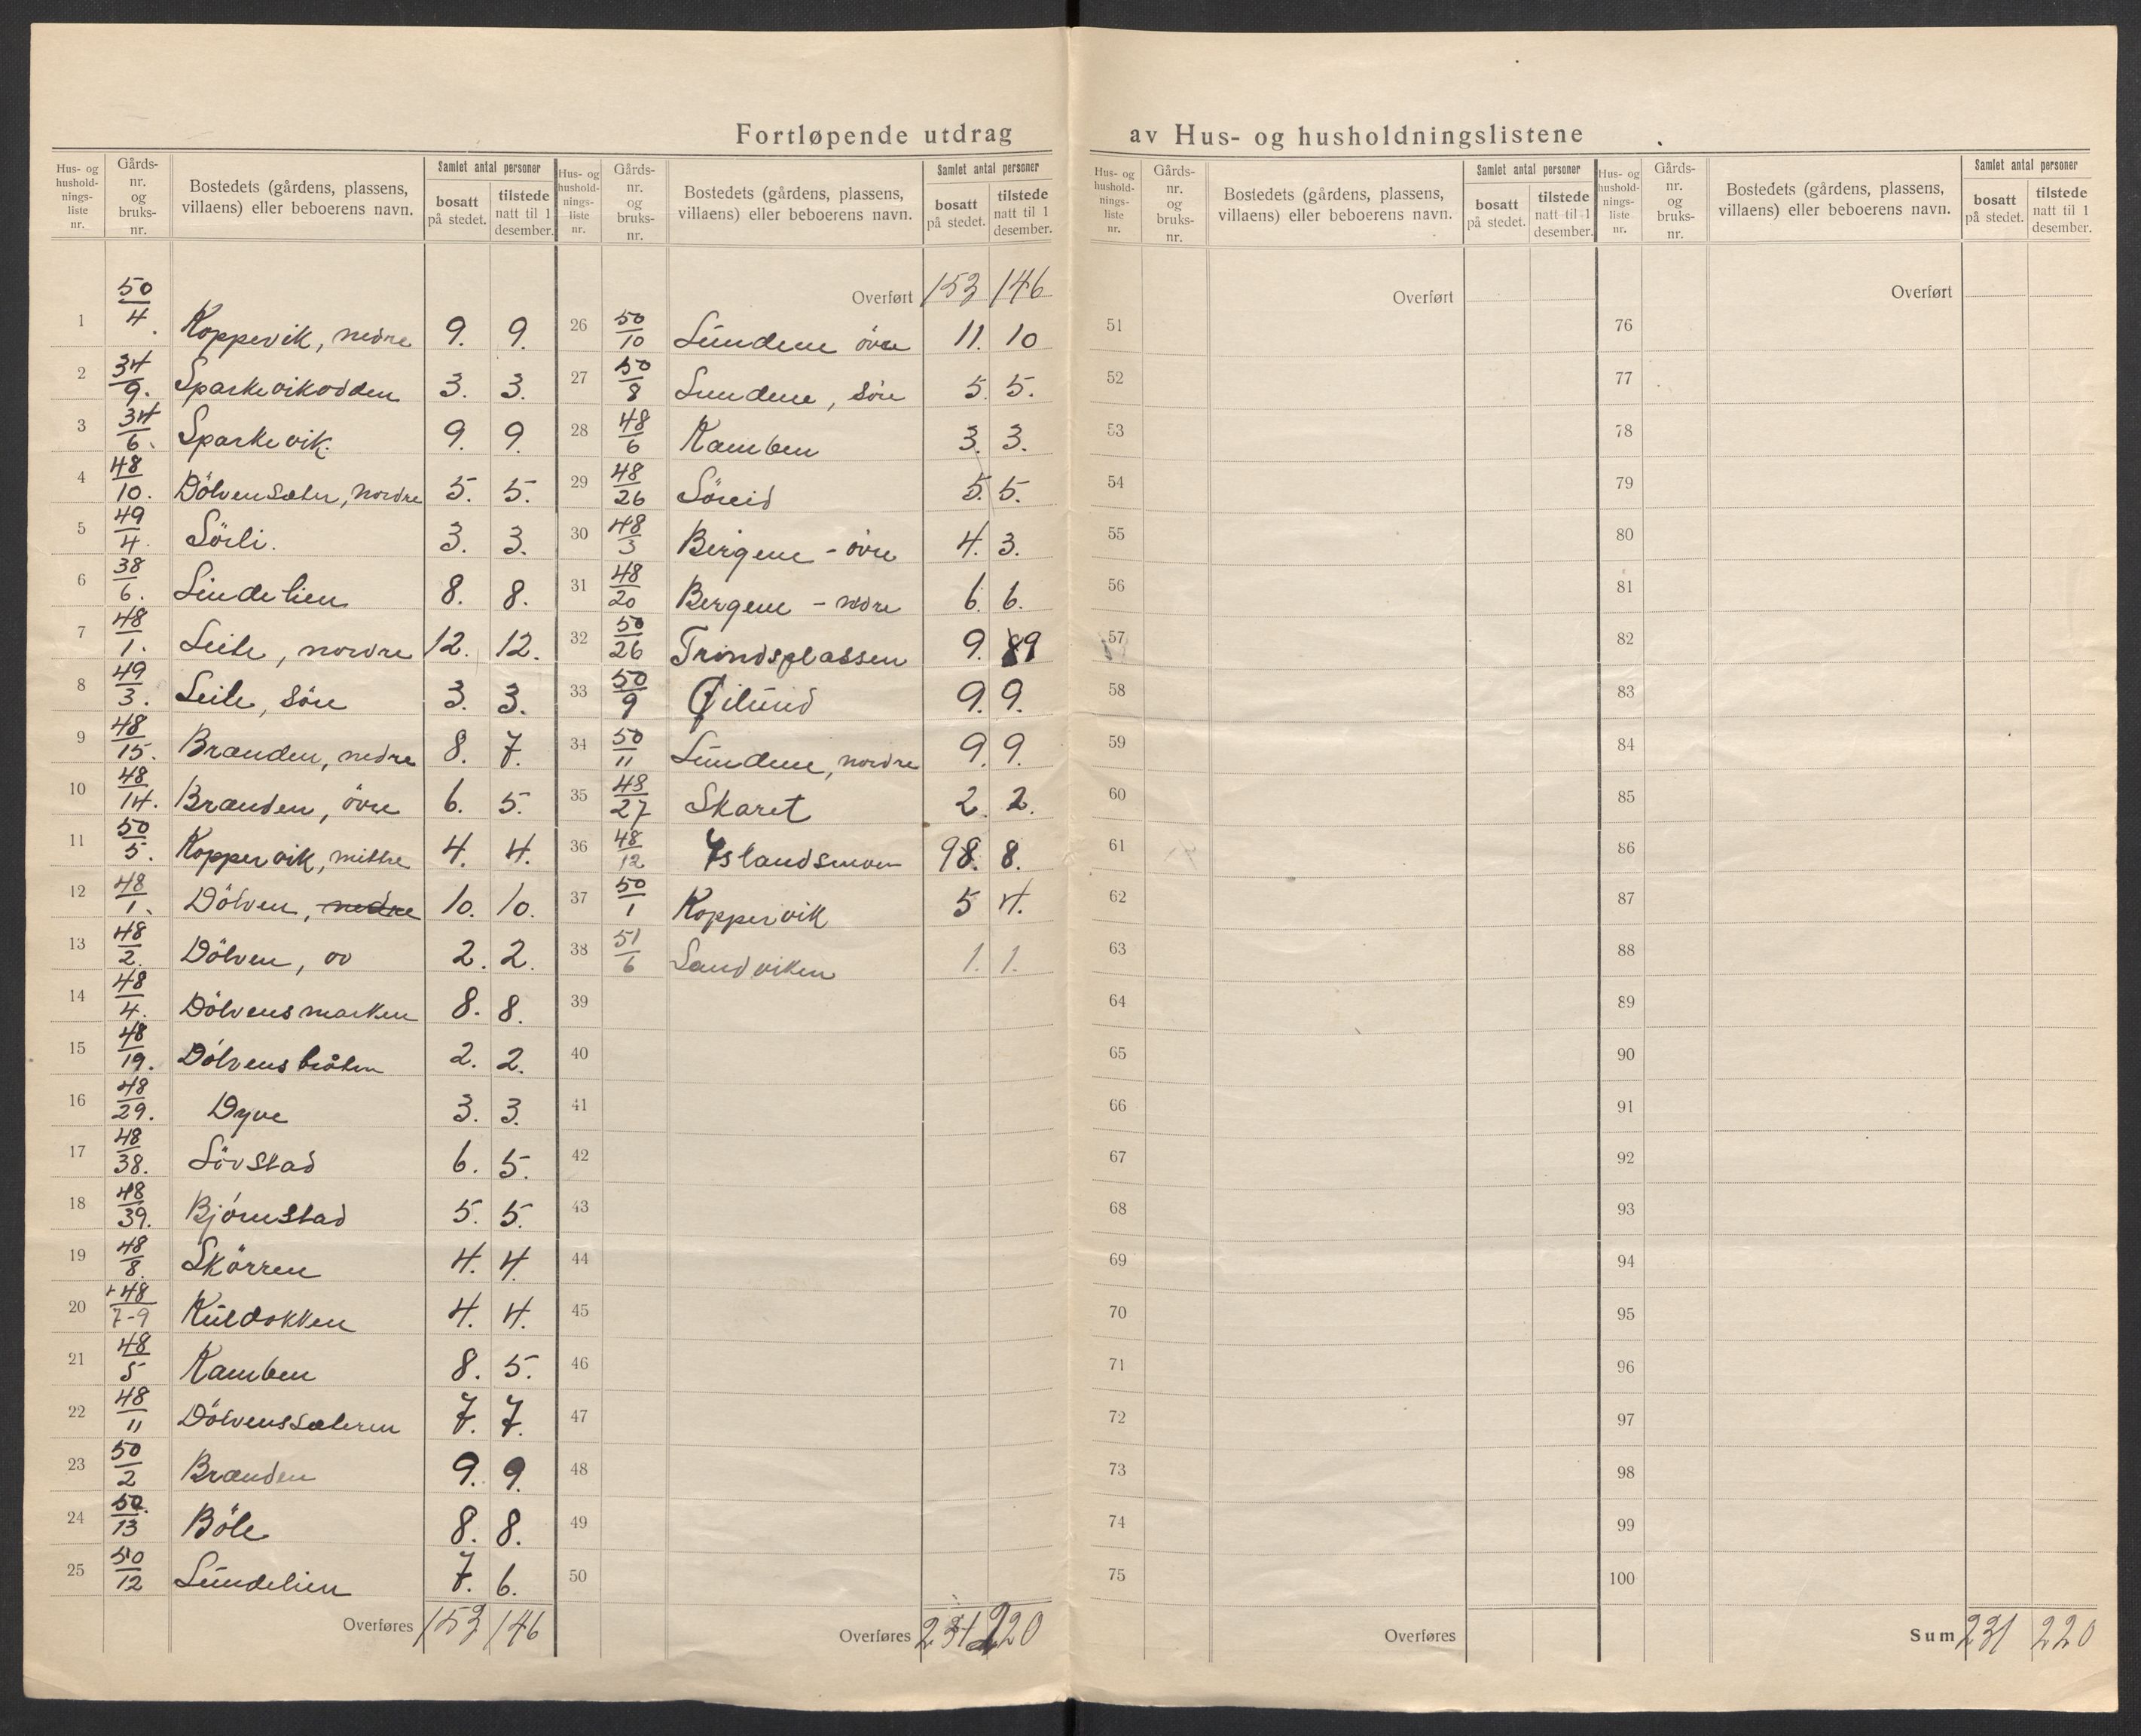 Fortløpende utdrag av Hus- og husholdningslistene
Hus- og hushold- nings- liste nr. Gårds- nr. og bruks- nr. Bostedets (gårdens, plassens, villaens) eller beboerens navn. Samlet antal personer bosatt på stedet. tilstede natt til 1 desember.
1 50/4. Koppervik, nedre 9. 9.
2 34/9. Sparkevikodden 3. 3.
3 34/6. Sparkevik. 9. 9.
4 48/10. Dölvensæter, nordre 5. 5.
5 49/4. Sörli. 3. 3.
6 38/6. Lindelien 8. 8.
7 48/1. Leite, nordre 12. 12.
8 49/3. Leite, söre 3. 3.
9 48/15. Brænden, nedre 8. 7.
10 48/14. Brænden, övre 6. 5.
11 50/5. Koppervik, mittre 4. 4.
12 48/1. Dölven, nedre 10. 10.
13 48/2. Dölven, ov 2. 2.
14 48/4. Dölvensmarken 8. 8.
15 48/19. Dölvensbråten 2. 2.
16 48/29. Dyve 3. 3.
17 48/38. Lövstad 6. 5.
18 48/39. Björnstad 5. 5.
19 48/8. Skörren 4. 4.
20 +48/7-9 Kuldokken 4. 4.
21 48/5 Kamben 8. 5.
22 48/11 Dölvenssæteren 7. 7.
23 50/2 Brænden 9. 9.
24 50/13 Böle 8. 8.
25 50/12 Lundelien 7. 6.
Overføres 153 146
Hus- og hushold- nings- liste nr. Gårds- nr. og bruks- nr. Bostedets (gårdens, plassens, villaens) eller beboerens navn. Samlet antal personer bosatt på stedet. tilstede natt til 1 desember.
Overført 153 146
26 50/10 Lundene övre 11. 10
27 50/8 Lundene, söre 5. 5.
28 48/6 Kamben 3. 3.
29 48/26 Söreid 5. 5.
30 48/3 Bergene - övre 4. 3.
31 48/20 Bergene - nedre 6. 6.
32 50/26 Trondsplassen 9. 89
33 50/9 Øilund 9. 9.
34 50/11 Lundene, nordre 9. 9.
35 48/27 Skaret 2. 2.
36 48/12 Yslandsmoen 98. 8.
37 50/1 Koppervik 5 4.
38 51/6 Sandviken 1. 1.
39
40
41
42
43
44
45
46
47
48
49
50
Overføres 231 220
Hus- og hushold- nings- liste nr. Gårds- nr. og bruks- nr. Bostedets (gårdens, plassens, villaens) eller beboerens navn. Samlet antal personer bosatt på stedet. tilstede natt til 1 desember.
Overført
51
52
53
54
55
56
57
58
59
60
61
62
63
64
65
66
67
68
69
70
71
72
73
74
75
Overføres
Hus- og hushold- nings- liste nr. Gårds- nr. og bruks- nr. Bostedets (gårdens, plassens, villaens) eller beboerens navn. Samlet antal personer bosatt på stedet. tilstede natt til 1 desember.
Overført
76
77
78
79
80
81
82
83
84
85
86
87
88
89
90
91
92
93
94
95
96
97
98
99
100
Sum 231 220